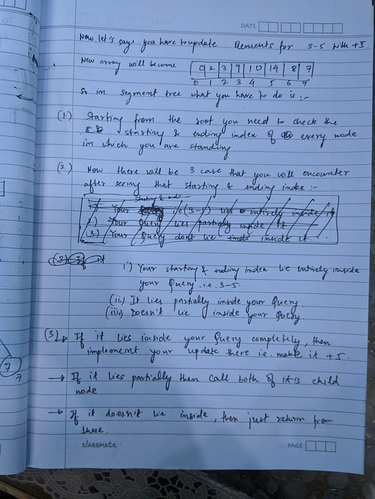 DATE
Now let's says you have to update Elements for 3-5 with +5
New array will become 9 2 3 9 10 14 8 7
0 1 2 3 4 5 6 7
So in segment tree what you have to do is :-
(1.) Starting from the root you need to check the
starting & ending index of every node
in which you are standing
(2.) Now there will be 3 case that you will encounter
after seeing that starting & ending index :-
starting & end
1.) Your i.e (3-5) lies entirely inside it
2.) Your Query lies partially inside it
3.) Your Query dont lie inside it.
i) Your starting & ending index lie entirely inside
your Query. i.e. 3-5.
(ii) It lies partially inside your Query
(iii) Doesn't lie inside your Query
(3) → If it lies inside your Query completely, then
implement your update there i.e. make it +5.
7
7
→ If it lies partially then call both of it's child
node
→ If it doesn't lie inside, then just return from
there.
classmate
PAGE